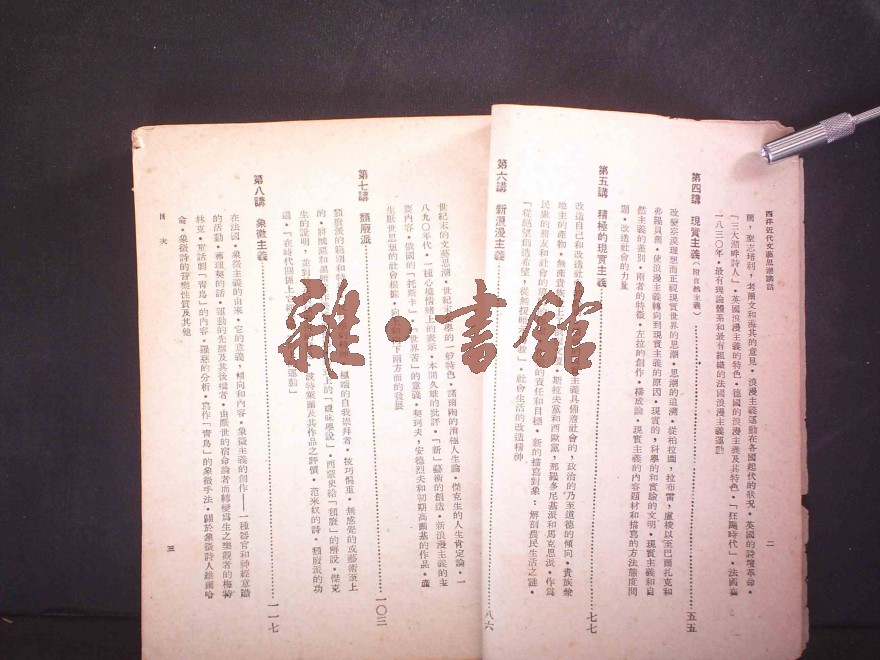 西洋近代文藝思潮講話
二
爾，聖志培利，考爾文和海其的意見・浪漫主義運動在各國起代的狀況・英國的詩壇革命・
「三大湖畔詩人」・英國浪漫主義的特色・德國的浪漫主義及其特色・「狂飈時代」・法國在
一八三〇年・最有理論體系和最有組織的法國浪漫主義運動
第四講 現實主義（附自然主義）
五五
改變空漠理想而正視現實世界的思潮・思潮的追溯・從柏拉圖，拉布雷，盧梭以至巴爾扎克和
弗羅貝爾・使浪漫主義轉向到現實主義的原因・現實的，科學的和實驗的文明・現實主義和自
然主義的差別・兩者的特徵・左拉的創作・構成論・現實主義的內容題材和描寫的方法態度問
題・改造社會的力量
第五講 積極的現實主義
七七
改造自己和改造社會
主義具備着社會的，政治的乃至道德的傾向・貴族兼
地主的產物・無產貴族
斯拉夫黨和西歐黨，那羅多尼基派和馬克思派・作爲
民衆的朋友和社會的
的責任和目標・新的描寫對象：解剖農民生活之謎・
「從絕望創造希望，從無
社會生活的改造精神
第六講 新浪漫主義
八六
世紀末的文藝思潮・世紀
學的一般特色・諸兩陶的消極人生論・傑克生的人生肯定論・一
八九〇年代・一種心境情緒上的表示・本間久雄的批評・「新」藝術的創造・新浪漫主義的主
要內容・俄國的「托斯卡」
「世界苦」的意義・契列夫，安德烈夫和初期高爾基的作品・產
生厭世思想的社會根據・向上和向下兩方面的發展
第七講 頹廢派
一〇三
頹廢派的範圍和
極端的自我崇拜者・技巧偏重・無感覺的或藝術至上
的，將醜惡和黑
上的「曖昧學說」・西蒙史給「頹廢」的解說・傑克
生的說明，並對
波特萊爾及其作品之評價・范米奴的詩・頹廢派的功
過・「在時代關係上它
運動」
第八講 象徵主義
一一七
在法國・象徵主義的由來・它的意義，傾向和內容・象徵主義的創作——一種器官和神經意識
的活動・蕭理契的話・運動的先驅及其後繼者・由厭世的宿命論者而轉變爲生之樂觀者的梅特
林克・童話劇「青鳥」的內容・羅慈的分析・寫作「青鳥」的象徵手法・關於象徵詩人維爾哈
侖・象徵詩的音樂性質及其他
目 次
三
雜・書館